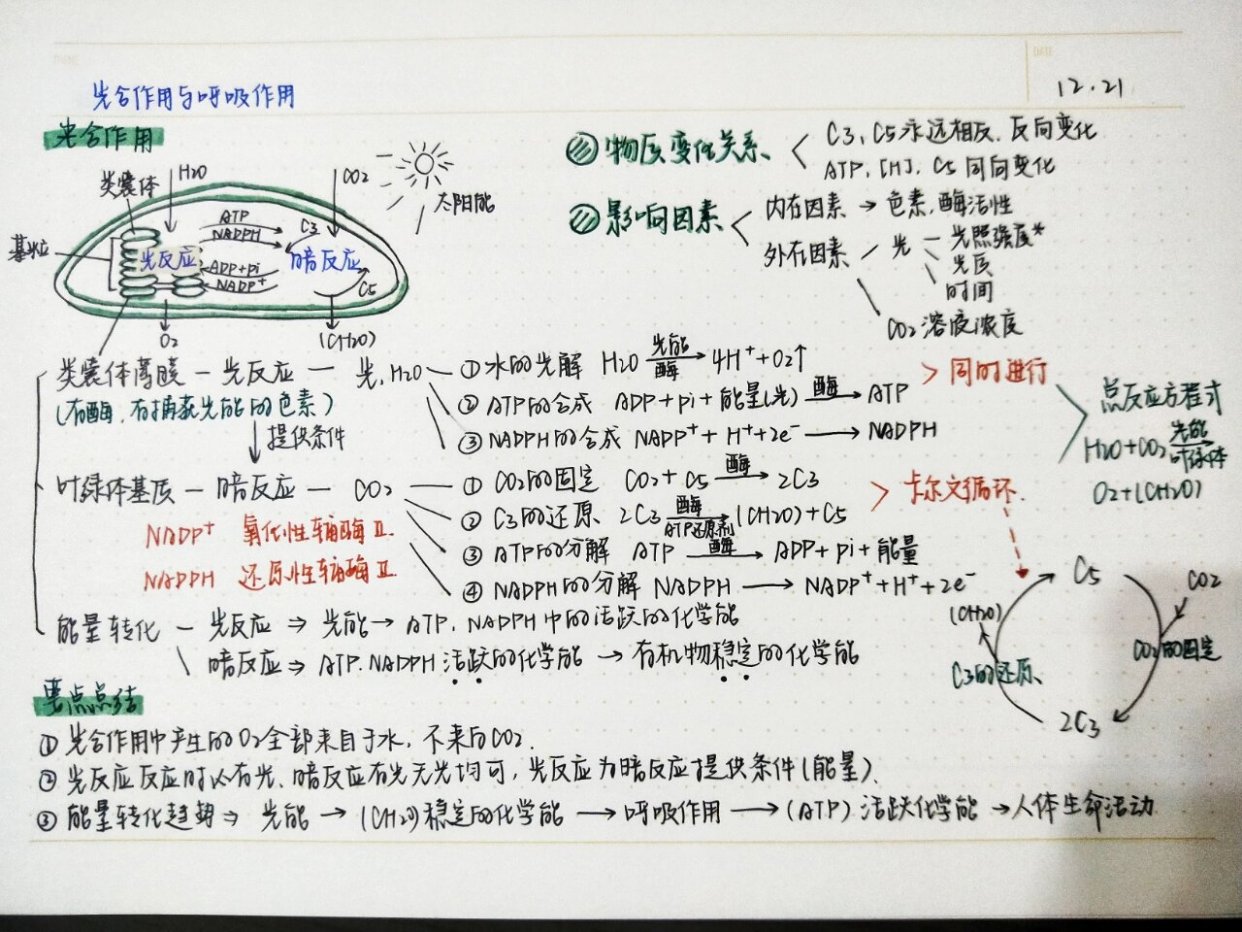 12.21
光合作用与呼吸作用
光合作用
类囊体
H2O
CO2
太阳能
基粒
ATP
NADPH
C3
光反应
暗反应
ADP+pi
NADP+
C5
O2
(CH2O)
物质变化关系
C3, C5永远相反、反向变化
ATP, [H], C5同向变化
影响因素
内在因素 → 色素,酶活性
外在因素
光 — 光照强度*
光质
时间
CO2溶液浓度
类囊体薄膜 — 光反应 — 光,H2O
(有酶,有捕获光能的色素)
提供条件
① 水的光解 H2O 光能 酶 → 4H+ + O2↑
② ATP的合成 ADP+pi+能量(光) 酶 → ATP
③ NADPH的合成 NADP+ + H+ + 2e- → NADPH
> 同时进行
叶绿体基质 — 暗反应 — CO2
NADP+ 氧化性辅酶Ⅱ.
NADPH 还原性辅酶Ⅱ.
① CO2的固定 CO2+C5 酶 → 2C3
② C3的还原、 2C3 酶 ATP还原剂 → (CH2O)+C5
③ ATP的分解 ATP 酶 → ADP+pi+能量
④ NADPH的分解 NADPH → NADP+ + H+ + 2e-
> 卡尔文循环.
总反应方程式
H2O+CO2 光能 叶绿体 →
O2+(CH2O)
能量转化 — 光反应 ⇒ 光能 → ATP, NADPH中的活跃的化学能
暗反应 ⇒ ATP.NADPH活跃的化学能 → 有机物稳定的化学能
C5
CO2
(CH2O)
CO2的固定
C3的还原、
2C3
要点总结
① 光合作用中产生的O2全部来自于水, 不来自CO2.
② 光反应反应时必有光、暗反应有光无光均可, 光反应为暗反应提供条件(能量).
③ 能量转化趋势 ⇒ 光能 → (CH2O)稳定的化学能 → 呼吸作用 → (ATP)活跃化学能 → 人体生命活动